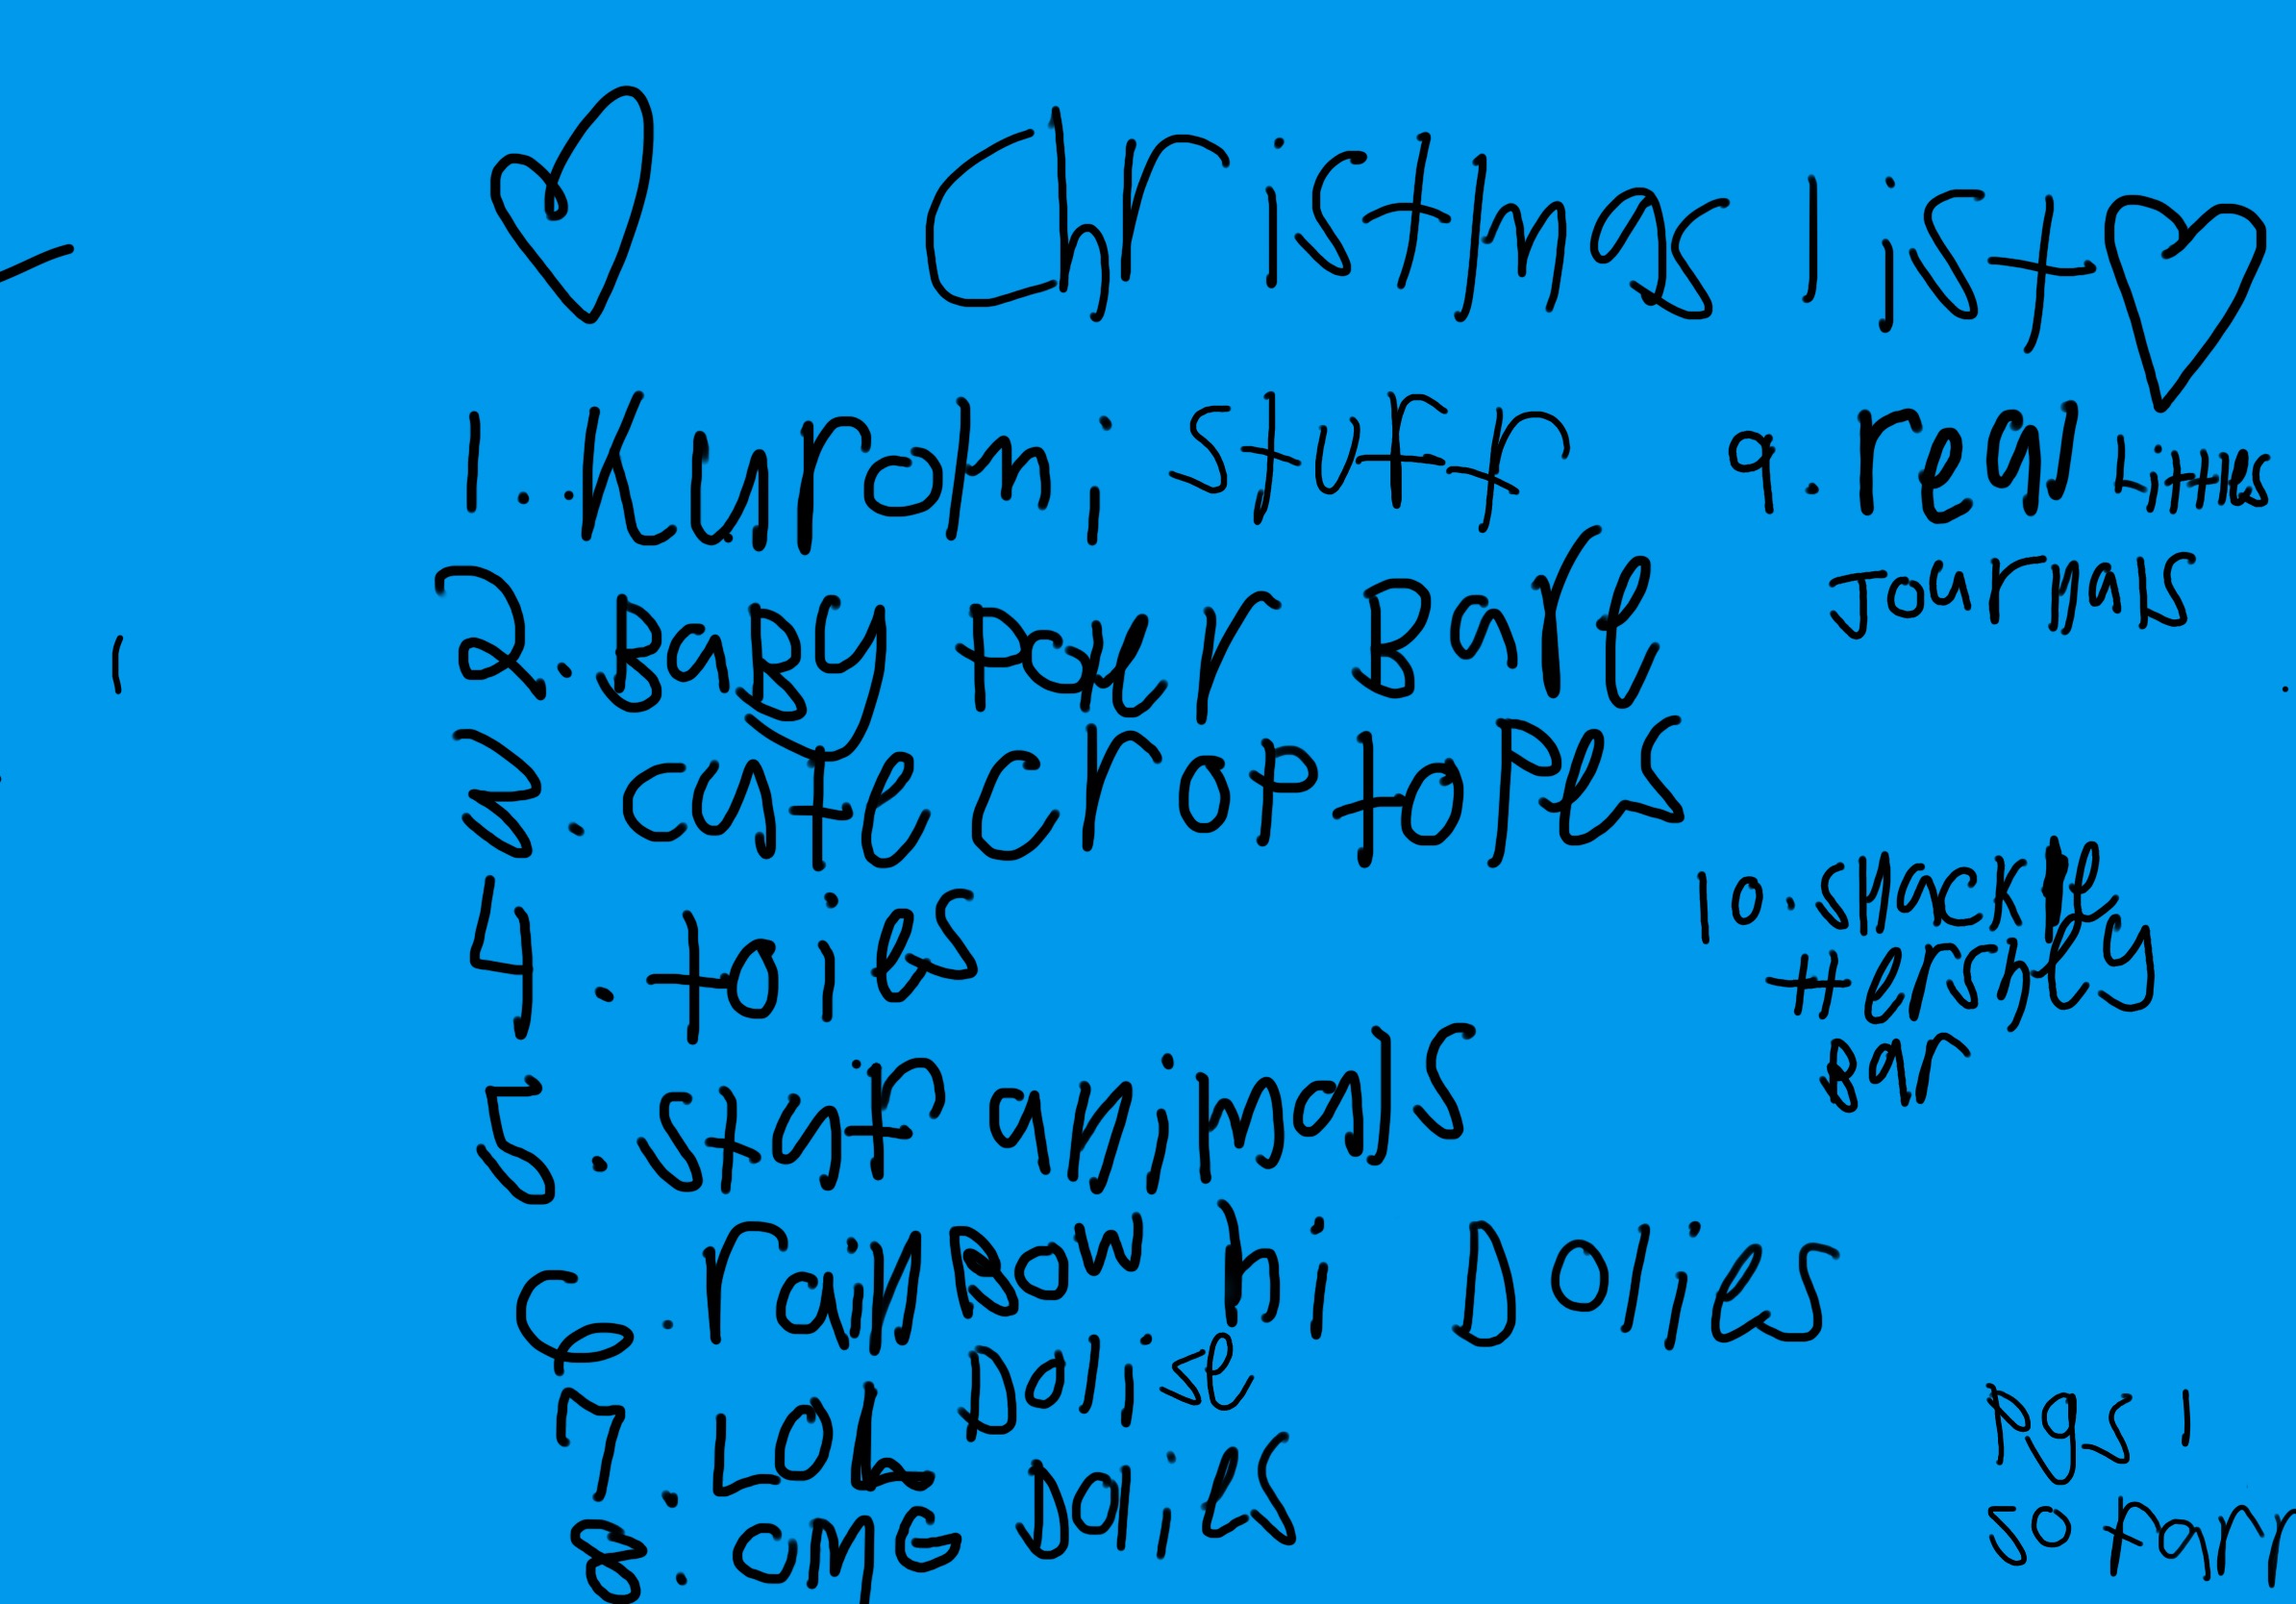 Christmas list
1. Kuromi stuff
2. BaBy power Bare
3. cate croptopes
4. toies
5. staf animals
6. rainBow hi Dolies
7. LOL Dolise
8. OMG Dolies
9. real Littles
Journals
10. shackley
Hershley
Bar
pgs 1
so